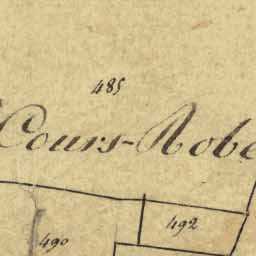 485
Cours-Robe
492
490